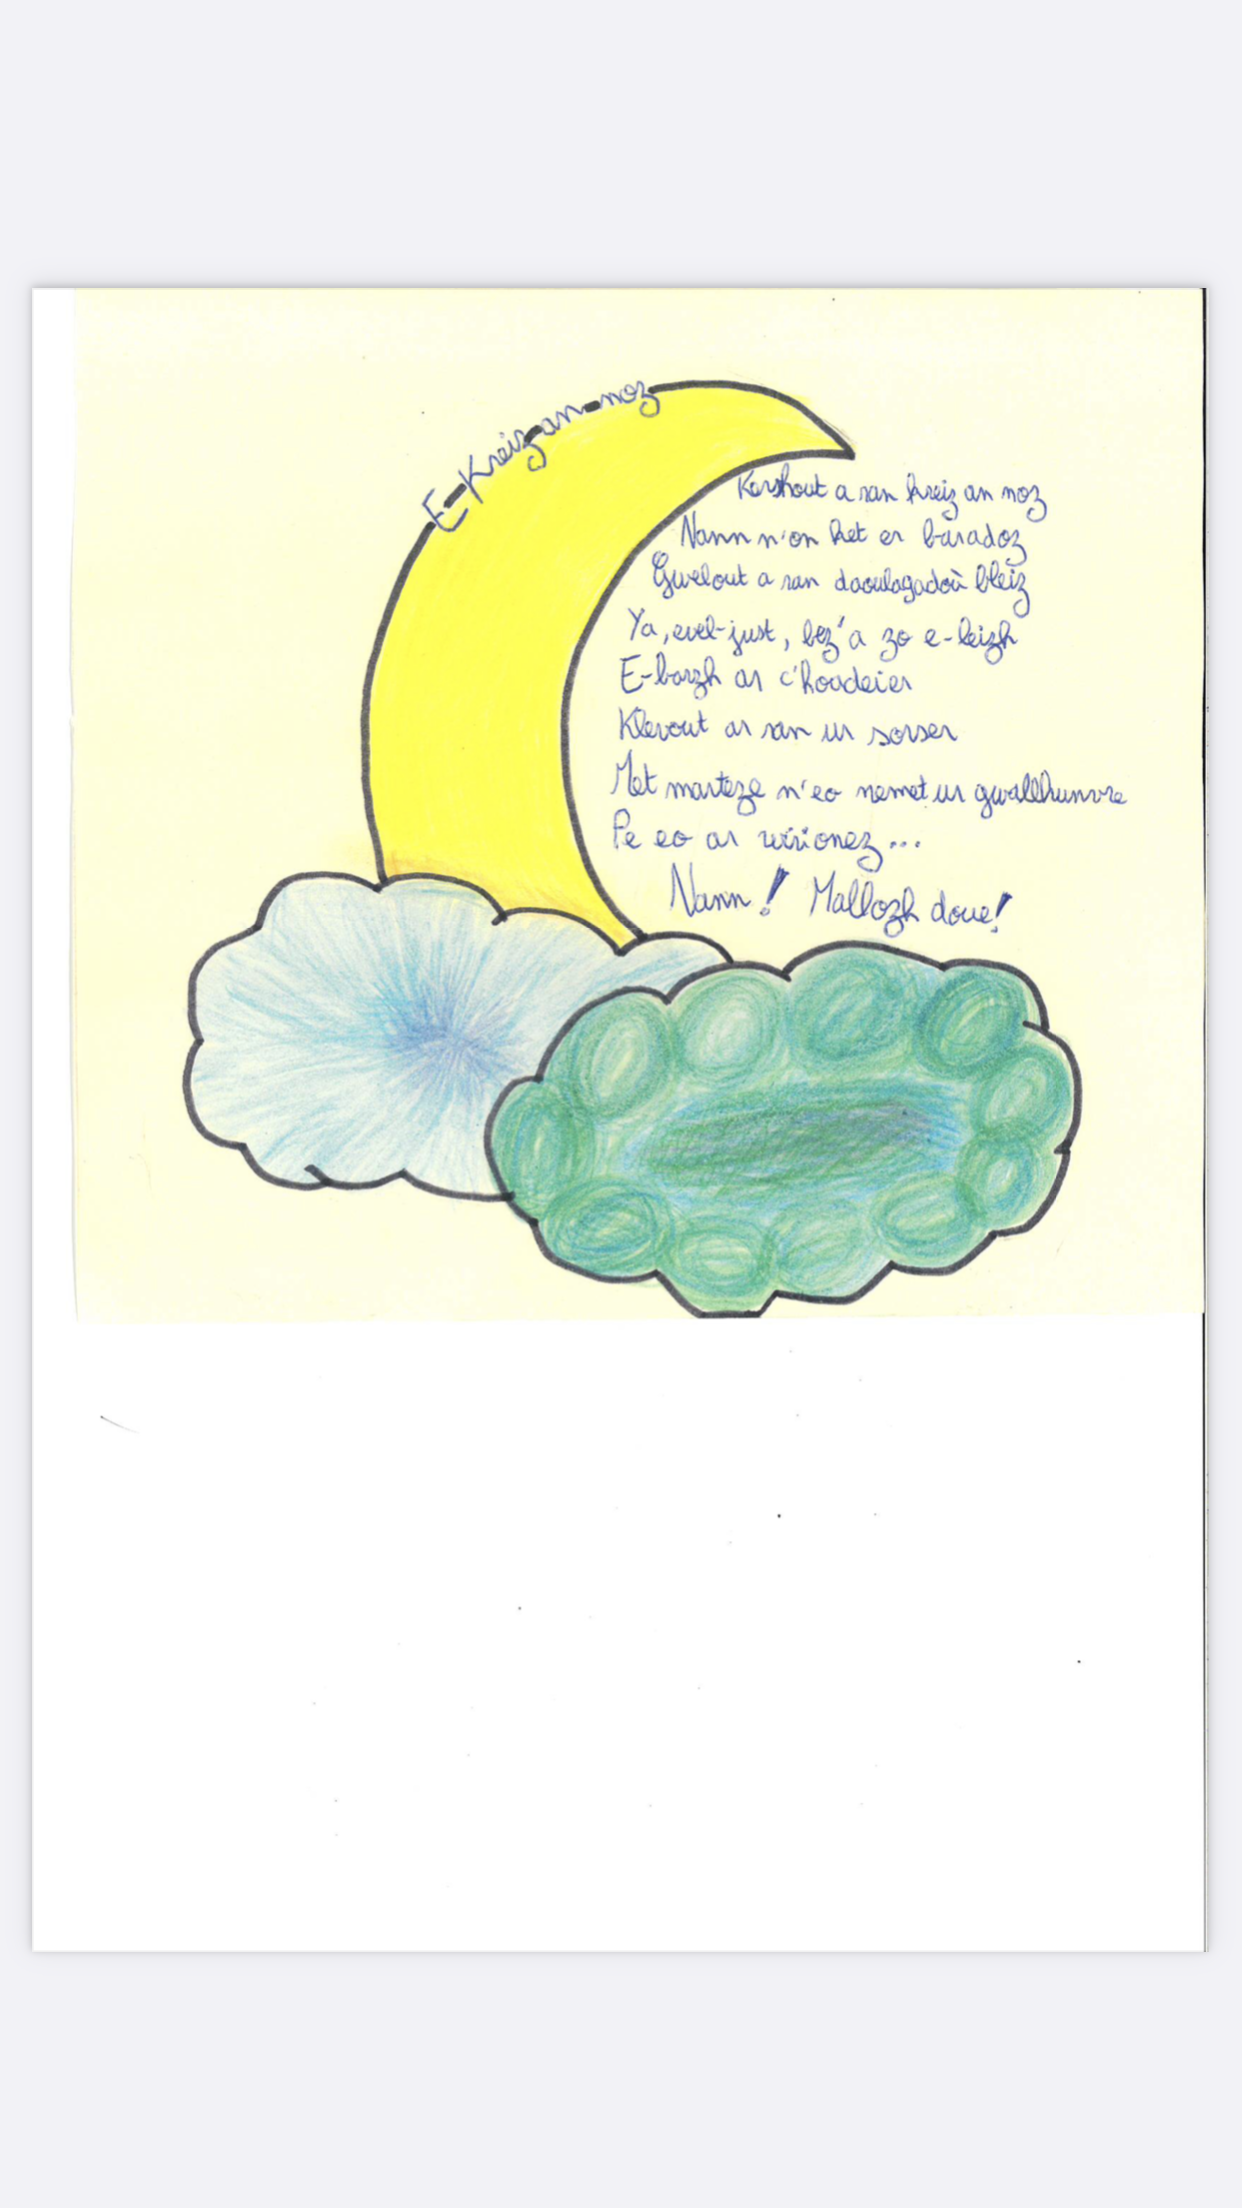 E-Kreiz-an-noz
Kerzhout a ran kreiz an noz
Nann n'on ket er baradoz
Gwelout a ran daoulagadoù bleiz
Ya, evel-just, bez'a zo e-leizh
E-barzh ar c'hoadeier
Klevout ar ran ur sorser
Met marteze n'eo nemet ur gwallhunvre
Pe eo ar wirionez...
Nann! Mallozh doue!